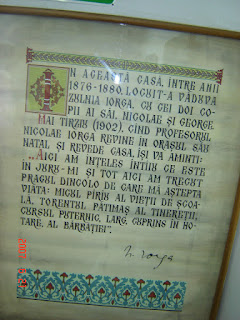 IN ACEASTĂ CASĂ, ÎNTRE ANII
1876-1880, LOCUIT-A VĂDUVA
ZULNIA IORGA, CU CEI DOI CO-
PII AI SĂI, NICOLAE ȘI GEORGE.
MAI TÎRZIU (1902), CÎND PROFESORUL
NICOLAE IORGA REVINE ÎN ORAȘUL SĂU
NATAL ȘI REVEDE CASA, ÎȘI VA AMINTI:
"AICI AM ÎNȚELES ÎNTÎI CE ESTE
ÎN JURU-MI ȘI TOT AICI AM TRECUT
PRAGUL DINCOLO DE CARE MĂ AȘTEPTA
VIAȚA: MICUL PÎRÎU AL VIEȚII DE ȘCOA-
LĂ, TORENTUL PĂTIMAȘ AL TINEREȚII,
CURSUL PUTERNIC, LARG, CUPRINS ÎN HO-
TARE, AL BĂRBĂȚIEI".
N. Iorga